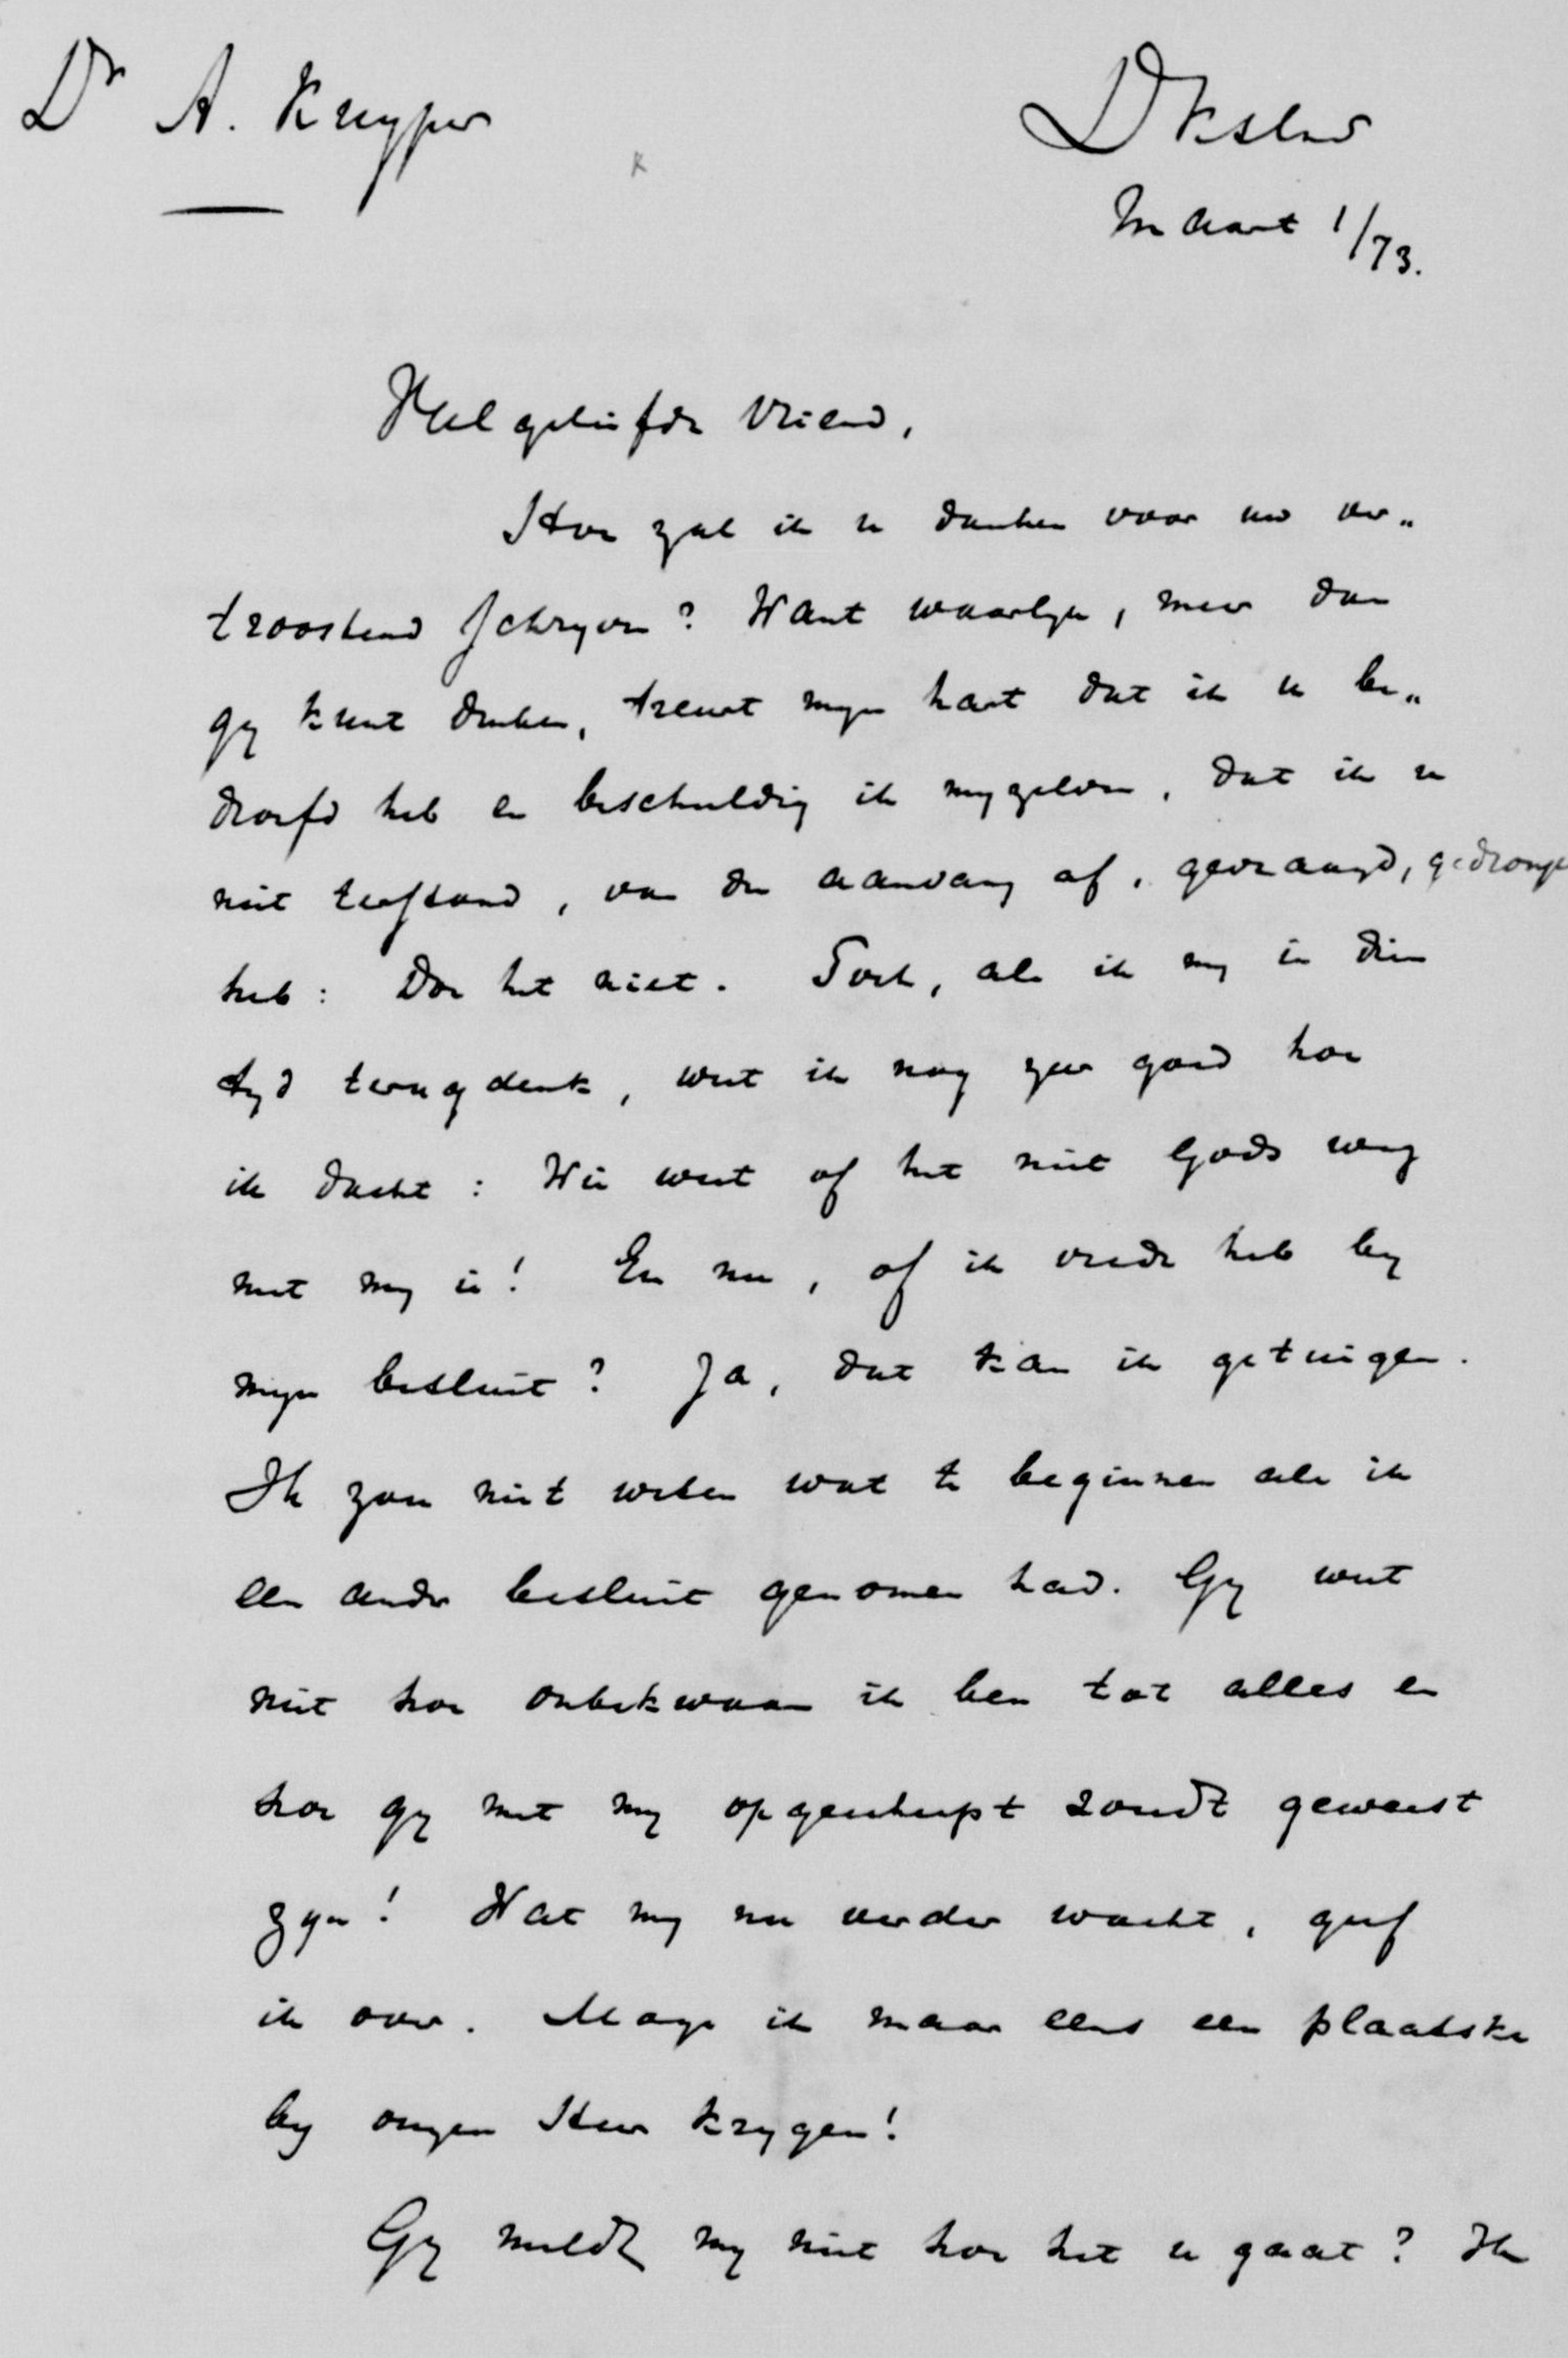 Dr A. Kuyper
Maart 1/73.
Veelgeliefde Vriend,
Hoe zal ik u danken voor uw ver„
troostend schryven? Want waarlyk, meer dan
gy kunt denken, treurt myn hart dat ik u be„
droefd heb en beschuldig ik myzelven, dat ik u
niet terstond, van den aanvang af, gevraagd, gedrongen
heb: Doe het niet. Toch, als ik my in dien
tyd terugdenk, weet ik nog zeer goed hoe
ik dacht: Wie weet of het niet Gods weg
met my is! En nu, of ik vrede heb by
myn besluit? Ja, dat kan ik getuigen.
Ik zou niet weten wat te beginnen als ik
een ander besluit genomen had. Gy weet
niet hoe onbekwaam ik ben tot alles en
hoe gy met my opgescheept zoudt geweest
zyn! Wat my nu verder wacht, geef
ik over. Moge ik maar eens een plaatske
by onzen Heer krygen!
Gy meldt my niet hoe het u gaat? Ik